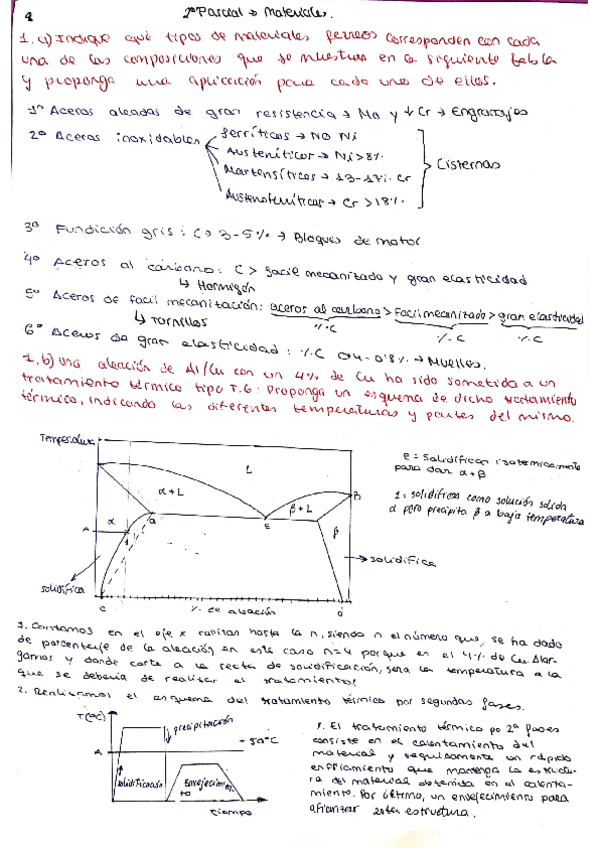 2º Parcial → Materiales.
1. a) Indique qué tipos de materiales férreos corresponden con cada
una de las composiciones que se muestran en la siguiente tabla
y proponga una aplicación para cada uno de ellos.
1º Aceros aleados de gran resistencia → Mo y ↓ Cr → Engranajes
2º Aceros inoxidables
Ferríticos → NO Ni
Austeníticos → Ni > 8%
Martensíticos → 13-17% Cr
Austenoferríticos → Cr > 18%
Cisternas
3º Fundición gris : C → 3-5% → Bloques de motor
4º Aceros al carbono: C > facil mecanizado y gran elasticidad
↳ Hormigón
5º Aceros de facil mecanización: aceros al carbono > Facil mecanizado > gran elasticidad
↳ Tornillos
%C %C %C
6º Aceros de gran elasticidad : %C 0'4-0'8% → Muelles.
1. b) Una aleación de Al/Cu con un 4% de Cu ha sido sometida a un
tratamiento térmico tipo T.6: Proponga un esquema de dicho tratamiento
térmico, indicando las diferentes temperaturas y partes del mismo.
Temperatura
L
α + L
β + L
α
β
a
E
B
A
1
solidifica
→ solidifica
C
% de aleación
E = Solidifican isotermicamente
para dar α + β
1 = solidifica como solución solida
α pero precipita β a baja temperatura
1. Contamos en el eje x rallitas hasta la n, siendo n el número que, se ha dado
de porcentaje de la aleación en este caso n=4 porque en el 4% de Cu. Alar-
gamos y donde corte a la recta de solidificación, sera la temperatura a la
que se debería de realizar el tratamiento!
2. Realizamos el esquema del tratamiento térmico por segundas fases.
T(ºC)
precipitación
A
- 50ºC
solidificado
envejecimiento
tiempo
1. El tratamiento térmico po 2º fases
consiste en el calentamiento del
material y seguidamente un rápido
enfriamiento que mantenga la estructu-
ra del material obtenida en el calenta-
miento. Por último, un envejecimiento para
afianzar esta estructura.